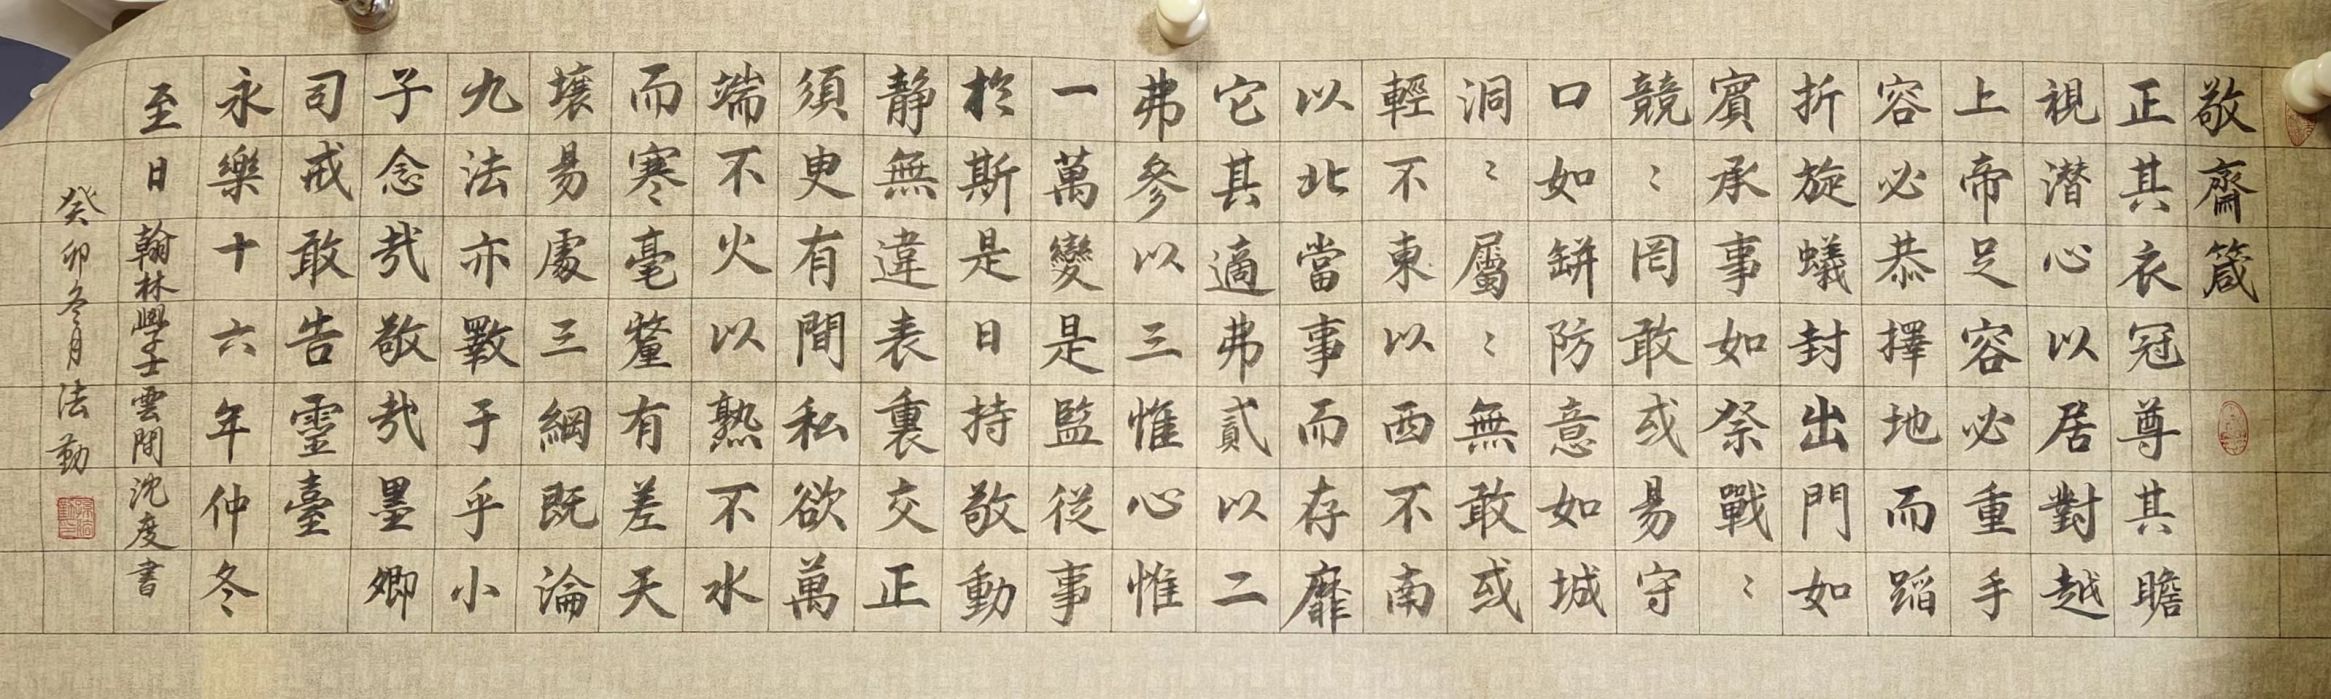 敬齋箴
正其衣冠尊其瞻
視潛心以居對越
上帝足容必重手
容必恭擇地而蹈
折旋蟻封出門如
賓承事如祭戰〻
競〻罔敢或易守
口如缾防意如城
洞〻屬〻無敢或
輕不東以西不南
以北當事而存靡
它其適弗貳以二
弗參以三惟心惟
一萬變是監從事
於斯是日持敬動
静無違表裏交正
須臾有間私欲萬
端不火以熱不水
而寒毫釐有差天
壤易處三綱既淪
九法亦斁于乎小
子念哉敬哉墨卿
司戒敢告靈臺
永樂十六年仲冬
至日翰林學士雲間沈度書
癸卯冬月法勤